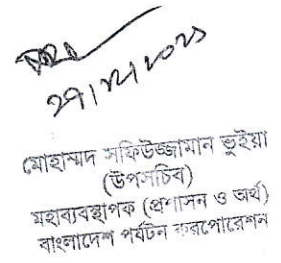 মোহাম্মদ সফিউজ্জামান ভুইয়া
(উপসচিব)
মহাব্যবস্থাপক (প্রশাসন ও অর্থ)
বাংলাদেশ পর্যটন করপোরেশন